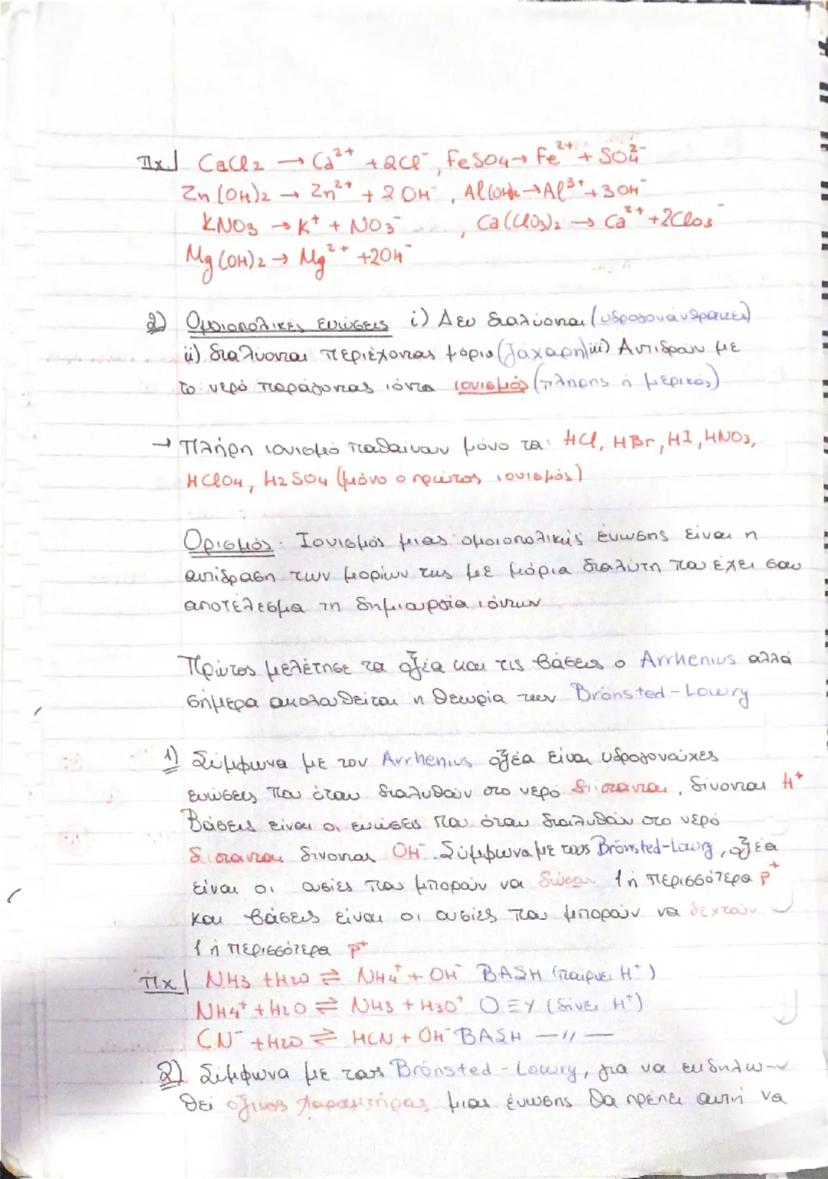 Πχ| CaCl2 → Ca²⁺ + 2Cl⁻, FeSO4 → Fe²⁺ + SO4²⁻
Zn(OH)2 → Zn²⁺ + 2OH⁻, Al(OH)3 → Al³⁺ + 3OH⁻
KNO3 → K⁺ + NO3⁻ ...., Ca(ClO3)2 → Ca²⁺ + 2ClO3⁻
Mg(OH)2 → Mg²⁺ + 2OH⁻
2) Ομοιοπολικές ενώσεις i) Δεν διαλύονται (υδρογονάνθρακες)
ii) διαλύονται περιέχοντας μόρια (ζάχαρη) iii) Αντιδρούν με
το νερό παράγοντας ιόντα ιονισμός (πλήρης ή μερικός)
→ Πλήρη ιονισμό παθαίνουν μόνο τα: HCl, HBr, HI, HNO3,
HClO4, H2SO4 (μόνο ο πρώτος ιονισμός)
Ορισμός: Ιονισμός μιας ομοιοπολικής ένωσης είναι η
αντίδραση των μορίων της με μόρια διαλύτη που έχει σαν
αποτέλεσμα τη δημιουργία ιόντων
Πρώτος μελέτησε τα οξέα και τις βάσεις ο Arrhenius αλλά
σήμερα ακολουθείται η θεωρία των Brönsted-Lowry
1) Σύμφωνα με τον Arrhenius οξέα είναι υδρογονούχες
ενώσεις που όταν διαλυθούν στο νερό διίστανται, δίνονται H⁺
Βάσεις είναι οι ενώσεις που όταν διαλυθούν στο νερό
διίστανται δίνοντας OH⁻. Σύμφωνα με τους Brönsted-Lowry, οξέα
είναι οι ουσίες που μπορούν να δώσουν 1 ή περισσότερα p⁺
και βάσεις είναι οι ουσίες που μπορούν να δεχτούν
1 ή περισσότερα p⁺
Πχ| NH3 + H2O ⇌ NH4⁺ + OH⁻ ΒΑΣΗ (παίρνει H⁺)
NH4⁺ + H2O ⇌ NH3 + H3O⁺ ΟΞΥ (δίνει H⁺)
CN⁻ + H2O ⇌ HCN + OH⁻ ΒΑΣΗ — // —
2) Σύμφωνα με τους Brönsted-Lowry, για να εκδηλω-
θεί όξινος χαρακτήρας μιας ένωσης θα πρέπει αυτή να